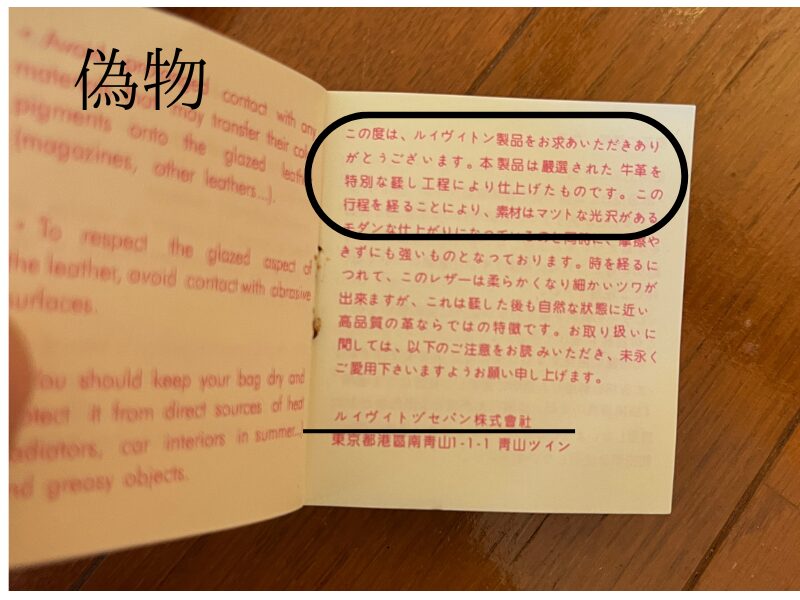 偽物
contact with any
may transfer their
pigments onto the glazed
(magazines, other leathers...).
• To respect the glazed aspect of
the leather, avoid contact with abrasive
surfaces.
You should keep your bag dry and
it from direct sources of heat
car interiors in summer...)
greasy objects.
この度は、ルイヴィトン製品をお求あいただきあり
がとうございます。本製品は厳選された 牛革を
特別な鞣し工程により仕上げたものです。この
行程を経ることにより、素材はマツトな光沢がある
モダンな仕上がりになっているのと同時に、摩擦や
きずにも強いものとなっております。時を経るに
つれて、このレザーは柔らかくなり細かいツワが
出來ますが、これは鞣した後も自然な狀態に近い
高品質の革ならではの特徴です。お取り扱いに
関しては、以下のご注意をお読みいただき、末永く
ご愛用下さいますようお願い申し上げます。
ルイヴィトヅセパン株式會社
東京都港區南靑山1-1-1 靑山ツイン